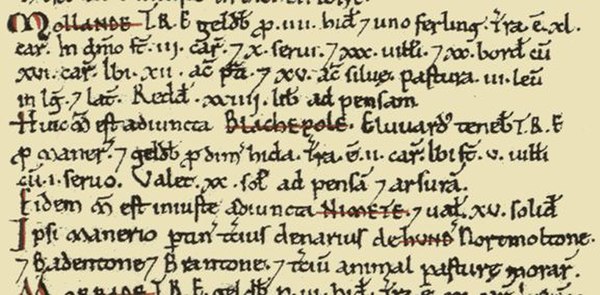 Mollande T.R.E. geldb̄ ꝓ .iiii. hid̄ ⁊ uno ferling. Tra.ē.xl.
car̄. In dn̄io st̄.iii. car̄. ⁊ x. serui. ⁊ xxx. uilli. ⁊ xx. bord̄ cū
xvi. car̄. Ibi. xii. ac̄ p̄ti. ⁊ xv. ac̄ siluę. pastura .iii. leū
in lḡ. ⁊ lat̄. Redd̄. xxiiii. lib̄ ad pensam
Huic m̄ est adiuncta Blachepole. Eluuard' teneb̄ T.R.E.
ꝓ maner̄. ⁊ geldb̄ ꝓ dim̄ hida. Tra.ē.ii. car̄. Ibi st̄. v. uilli
cū.i. seruo. Valet. xx. sol̄ ad pensā ⁊ arsurā.
Eidem m̄ est iniuste adiuncta Nimete. ⁊ ual̄. xv. solid̄
Ipsi manerio ptin̄ tcius denarius de hund̄ Nortmoltone.
⁊ Badentone ⁊ Brantone. ⁊ tciū animal pasturę morar̄.
T.R.E. geldb̄